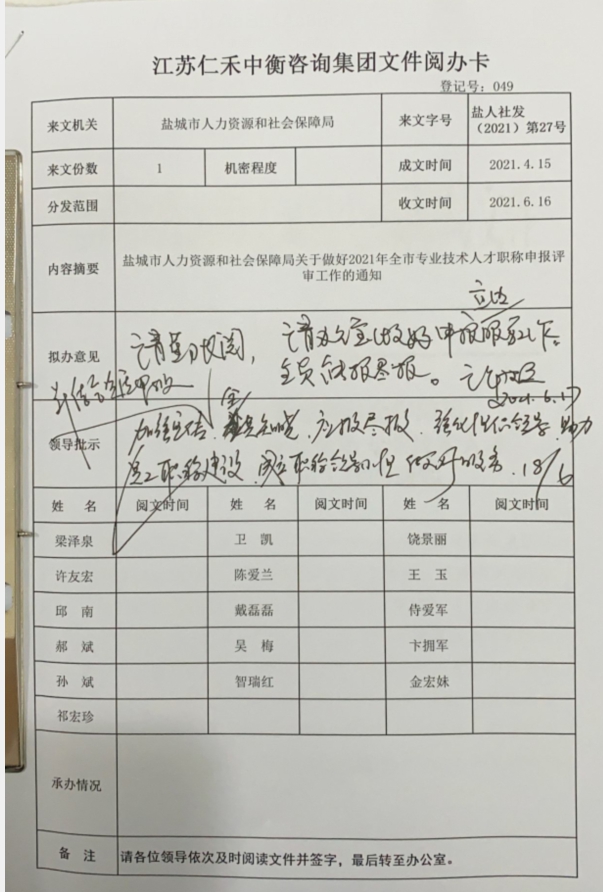 江苏仁禾中衡咨询集团文件阅办卡
登记号：049
来文机关 盐城市人力资源和社会保障局 来文字号 盐人社发（2021）第27号
来文份数 1 机密程度 成文时间 2021.4.15
分发范围 收文时间 2021.6.16
内容摘要 盐城市人力资源和社会保障局关于做好2021年全市专业技术人才职称申报评
审工作的通知
拟办意见
请 阅， 请办公室做好申报服务工作。
全员应报尽报。
2021.6.17
领导批示
加强宣告，全员知晓，应报尽报，强化 助力
员工职称建设， 做好服务. 18/6
姓 名 阅文时间 姓 名 阅文时间 姓 名 阅文时间
梁泽泉 卫 凯 饶景丽
许友宏 陈爱兰 王 玉
邱 南 戴磊磊 侍爱军
郝 斌 吴 梅 卞拥军
孙 斌 智瑞红 金宏妹
祁宏珍
承办情况
备 注 请各位领导依次及时阅读文件并签字，最后转至办公室。